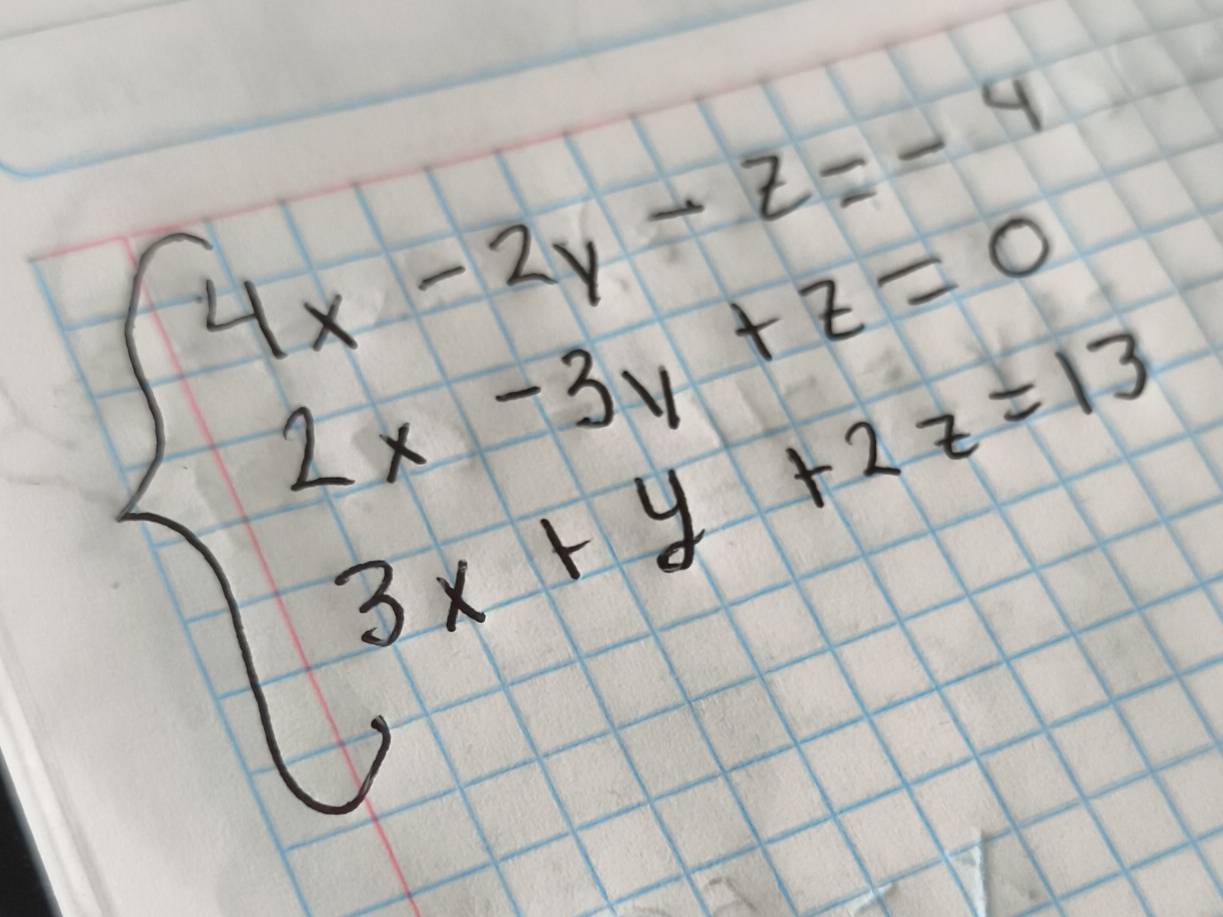 4x - 2y - z = - 4
2x - 3y + z = 0
3x + y + 2z = 13